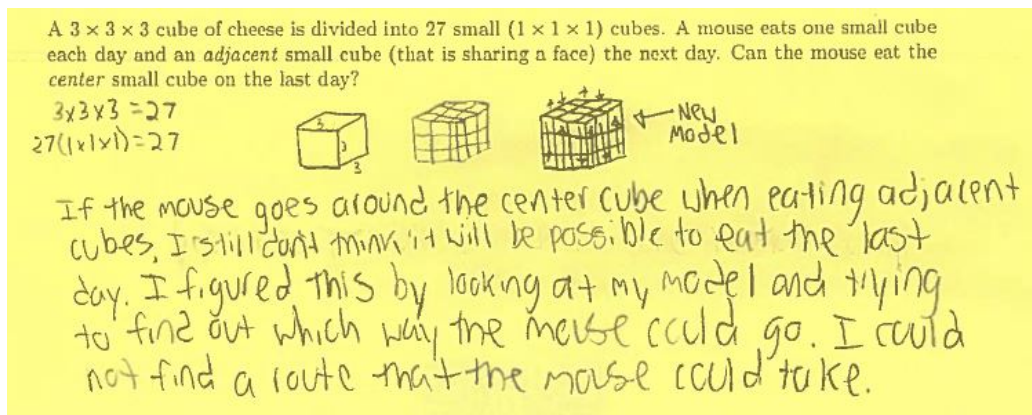 A 3 × 3 × 3 cube of cheese is divided into 27 small (1 × 1 × 1) cubes. A mouse eats one small cube
each day and an adjacent small cube (that is sharing a face) the next day. Can the mouse eat the
center small cube on the last day?
3x3x3 = 27
27(1x1x1) = 27
3
3
3
New
Model
If the mouse goes around the center cube when eating adjacent
cubes, I still don't think it will be possible to eat the last
day. I figured this by looking at my model and trying
to find out which way the mouse could go. I could
not find a route that the mouse could take.